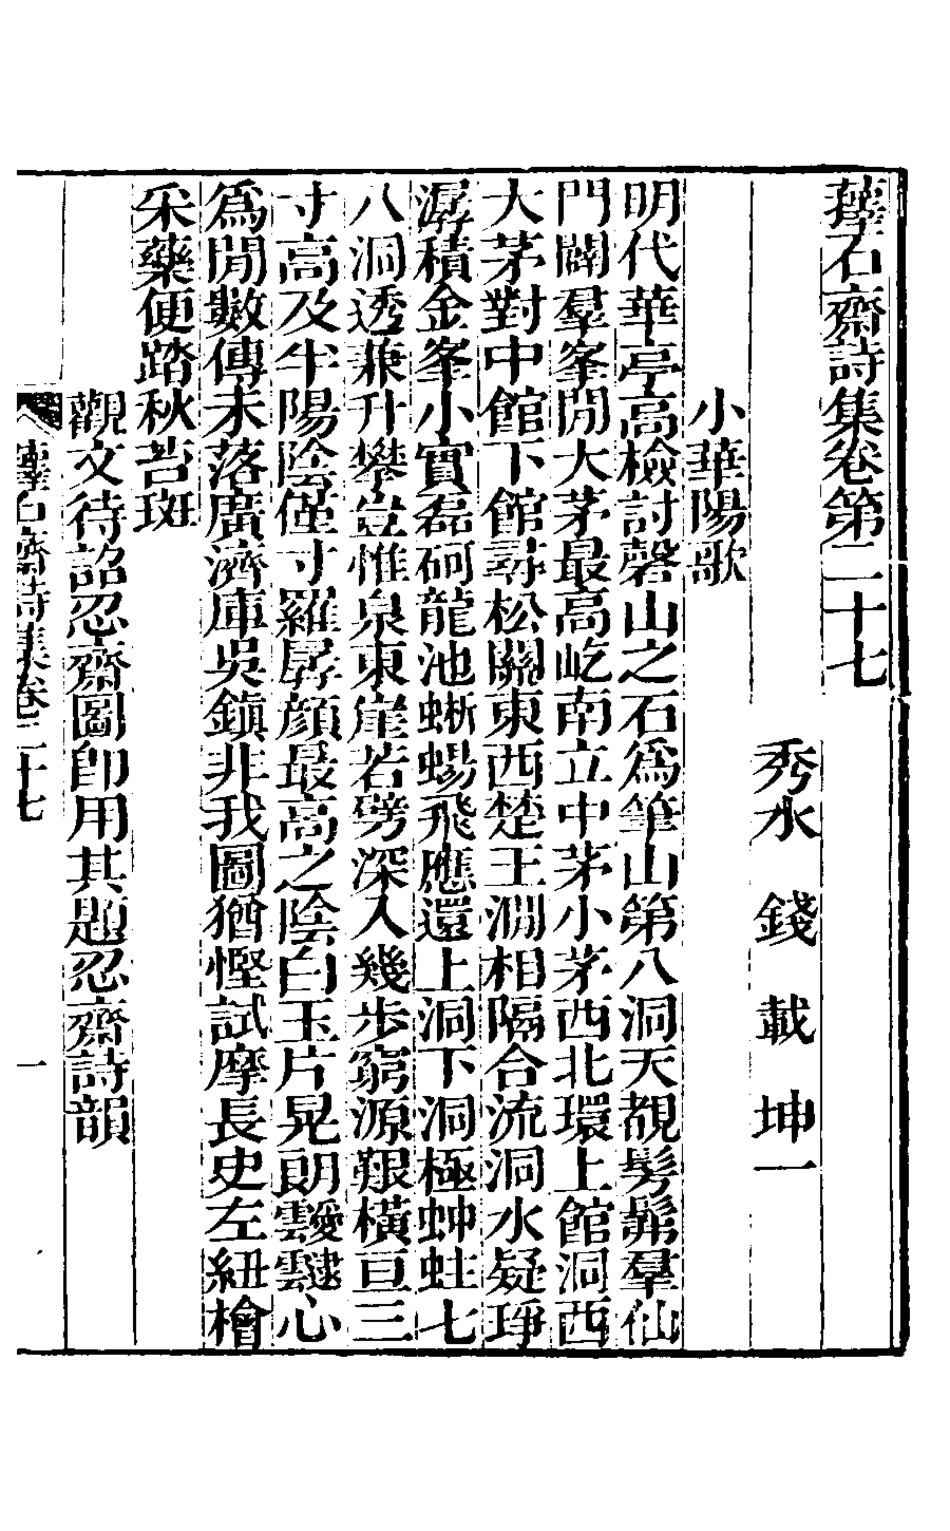 蘀石齋詩集卷第二十七
秀水 錢 載 坤一
小華陽歌
明代華亭高檢討磬山之石爲筆山第八洞天覩髣髴羣仙
門闢羣峯閒大茅最高屹南立中茅小茅西北環上館洞西
大茅對中館下館尋松關東西楚王澗相隔合流洞水疑琤
潺積金峯小實磊砢龍池蜥蜴飛應還上洞下洞極蚛蛀七
八洞透兼升攀豈惟泉東崖若劈深入幾步窮源艱橫亘三
寸高及半陽陰僅寸羅孱顏最高之陰白玉片晃朗靉靆心
爲閒數傳未落廣濟庫吳鎮非我圖猶慳試摩長史左紐檜
采藥便踏秋苔斑
觀文待詔忍齋圖卽用其題忍齋詩韻
蘀石齋詩集卷二十七
一